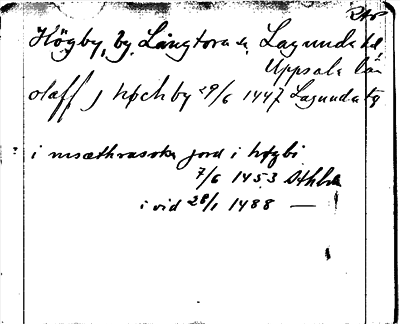 RAP
Högby, by, Långtora sn, Lagunda hd,
Uppsala län
olaff j høchby 29/6 1447 Lagunda tg
i næthrasoka jord i høgbi
7/6 1453 Sthlm
i vid 28/1 1488 —